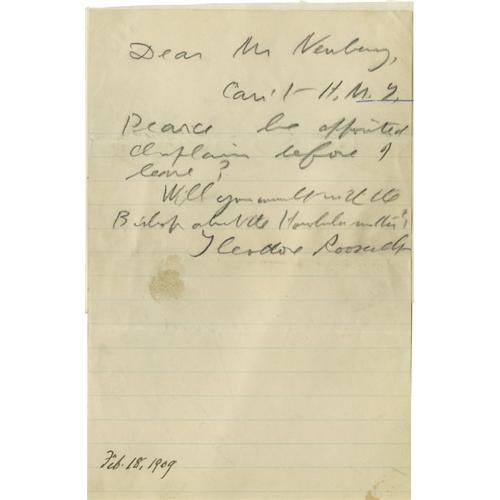 Dear Mr Newberry,
Can't H. M. T.
Pearce be appointed
chaplain before I
leave?
Will you consult with the
Bishop about the Honolulu matter?
Theodore Roosevelt
Feb. 18, 1909